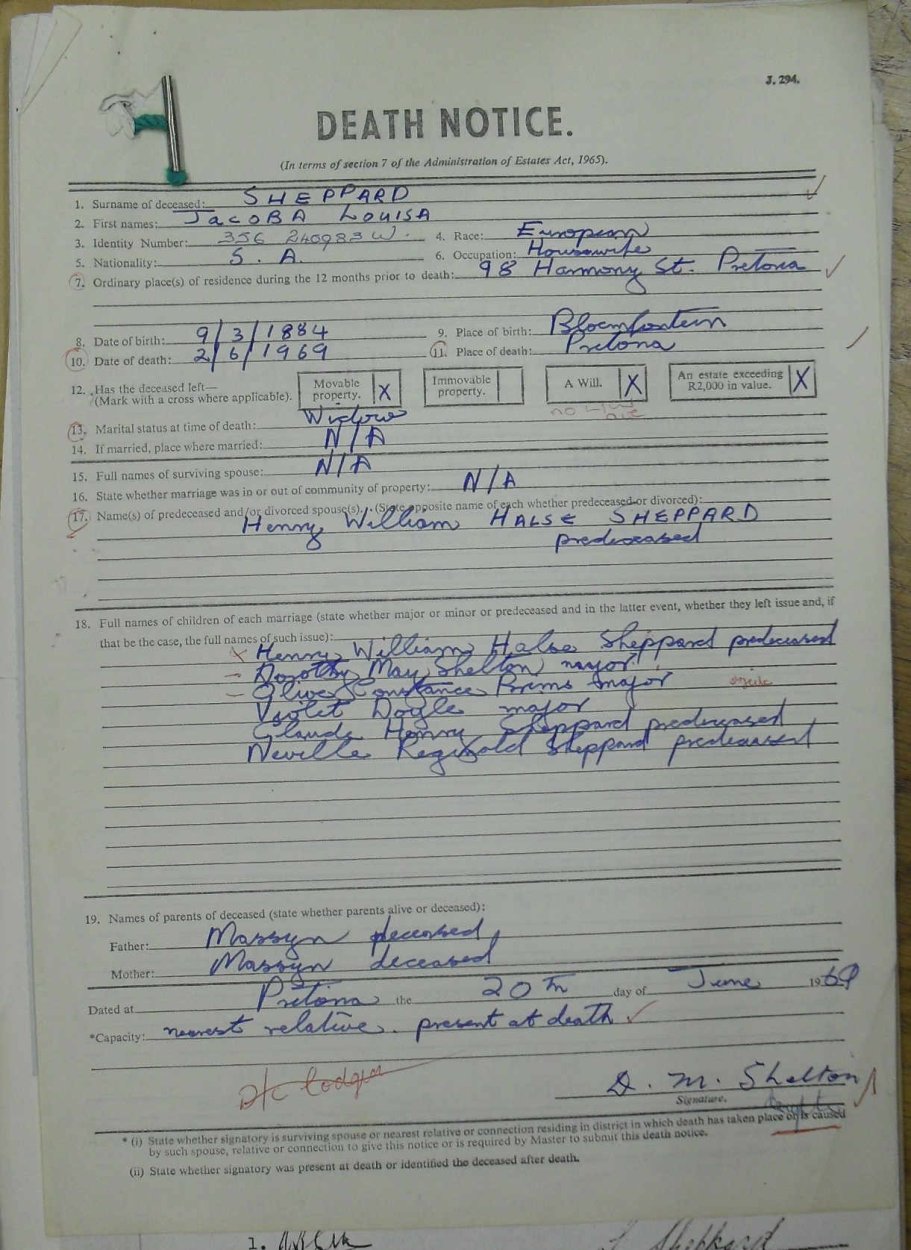 J. 294.
DEATH NOTICE.
(In terms of section 7 of the Administration of Estates Act, 1965).
1. Surname of deceased: SHEPPARD
2. First names: JACOBA LOUISA
3. Identity Number: 356 240983 W. 4. Race: European
5. Nationality: S. A. 6. Occupation: Housewife
7. Ordinary place(s) of residence during the 12 months prior to death: 98 Harmony St. Pretoria
8. Date of birth: 9/3/1884 9. Place of birth: Bloemfontein
10. Date of death: 2/6/1969 11. Place of death: Pretoria
12. Has the deceased left— Movable property. X Immovable property. A Will. X An estate exceeding R2,000 in value. X
(Mark with a cross where applicable).
13. Marital status at time of death: Widow
14. If married, place where married: N/A
15. Full names of surviving spouse: N/A
16. State whether marriage was in or out of community of property: N/A
17. Name(s) of predeceased and/or divorced spouse(s). (State opposite name of each whether predeceased or divorced):
Henry William HALSE SHEPPARD
predeceased
18. Full names of children of each marriage (state whether major or minor or predeceased and in the latter event, whether they left issue and, if
that be the case, the full names of such issue):
x Henry William Halse Sheppard predeceased
– Dorothy May Shelton major
– Olive Constance Brims major
Violet Doyle major
Claude Henry Sheppard predeceased
Neville Reginald Sheppard predeceased
19. Names of parents of deceased (state whether parents alive or deceased):
Father: Massyn deceased
Mother: Massyn deceased
Dated at Pretoria the 20th day of June 1969
*Capacity: nearest relative. present at death
D/C lodged
D. M. Shelton
Signature.
* (i) State whether signatory is surviving spouse or nearest relative or connection residing in district in which death has taken place or is caused
by such spouse, relative or connection to give this notice or is required by Master to submit this death notice.
(ii) State whether signatory was present at death or identified the deceased after death.
1.
Sheppard